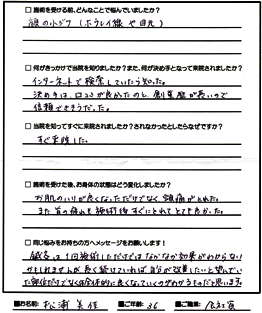 □ 施術を受ける前、どんなことで悩んでいましたか?
顔の小ジワ(ホウレイ線や目元)
□ 何がきっかけで当院を知りましたか?また、何が決め手となって来院されましたか?
インターネットで検索していたら知った。
決め手は、口コミが良かったのと、創業歴が長いので
信頼できそうだった。
□ 当院を知ってすぐに来院されましたか?されなかったとしたらなぜですか?
すぐ来院した。
□ 施術を受けた後、お身体の状態はどう変化しましたか?
お肌のハリが良くなっただけでなく、頭痛がとれた。
また首の疲れも施術後すぐにとれてとても良かった。
□ 同じ悩みをお持ちの方へメッセージをお願いします!
鍼灸は1回施術しただけではなかなか効果がわからない
かもしれませんが長く続けていれば自分が改善したいと望んでい
た部位だけでなく体全体的に良くなっていくのがわかるものだと思います。
お名前: 松浦 美佳 ご年齢: 36 ご職業: